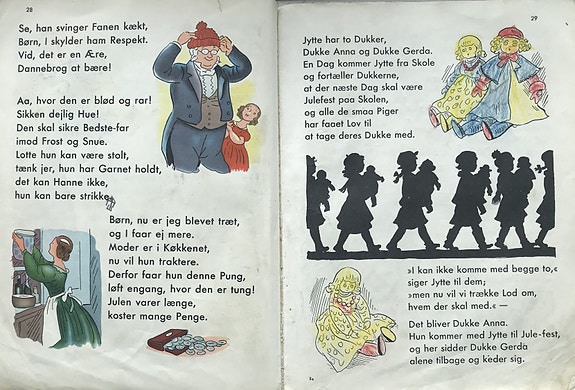 28
Se, han svinger Fanen kækt,
Børn, I skylder ham Respekt.
Vid, det er en Ære,
Dannebrog at bære!
Aa, hvor den er blød og rar!
Sikken dejlig Hue!
Den skal sikre Bedste-far
imod Frost og Snue.
Lotte hun kan være stolt,
tænk jer, hun har Garnet holdt,
det kan Hanne ikke,
hun kan bare strikke.
Børn, nu er jeg blevet træt,
og I faar ej mere.
Moder er i Køkkenet,
nu vil hun traktere.
Derfor faar hun denne Pung,
løft engang, hvor den er tung!
Julen varer længe,
koster mange Penge.
29
Jytte har to Dukker,
Dukke Anna og Dukke Gerda.
En Dag kommer Jytte fra Skole
og fortæller Dukkerne,
at der næste Dag skal være
Julefest paa Skolen,
og alle de smaa Piger
har faaet Lov til
at tage deres Dukke med.
»I kan ikke komme med begge to,«
siger Jytte til dem;
»men nu vil vi trække Lod om,
hvem der skal med.« —
Det bliver Dukke Anna.
Hun kommer med Jytte til Jule-fest,
og her sidder Dukke Gerda
alene tilbage og keder sig.